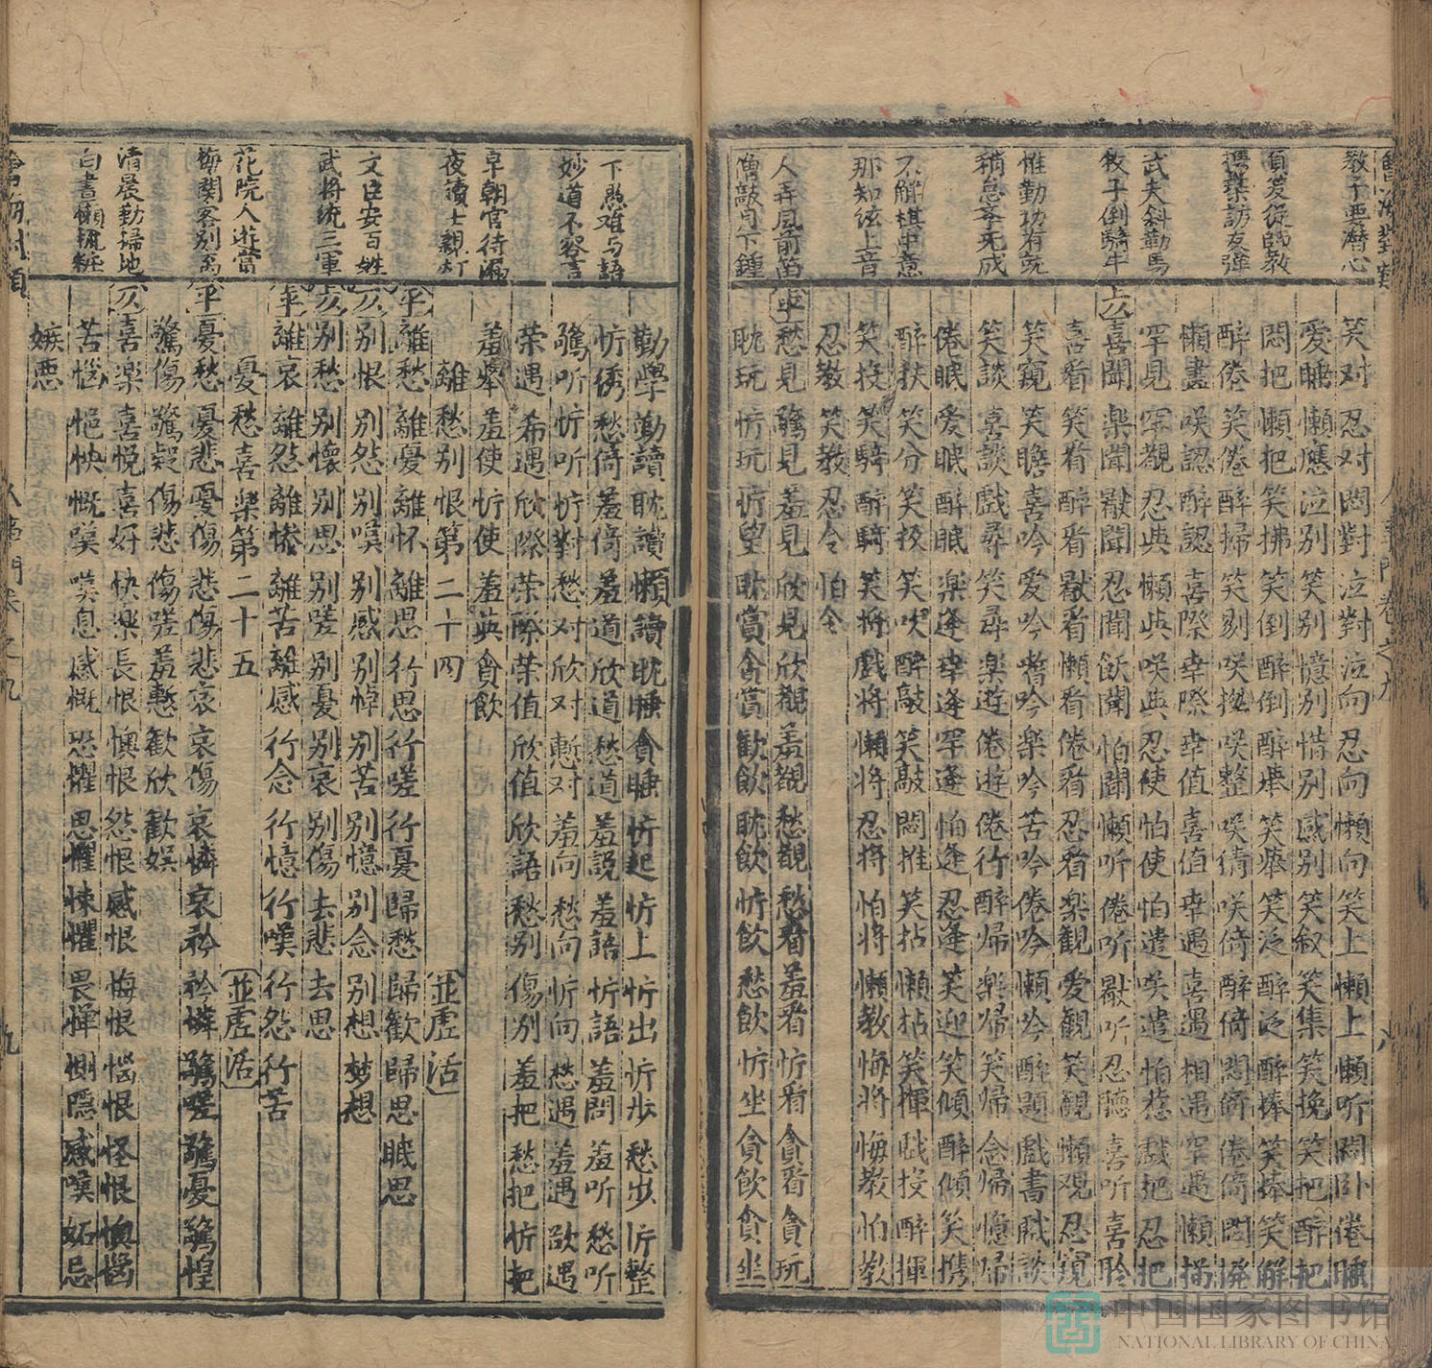 教子要潛心
負笈從師教
攜琴訪友彈
武夫斜勒馬
牧子倒騎牛
惟勤功有就
稍怠事无成
不解棋中意
那知絃上音
人弄風前笛
僧敲月下鐘
笑对 忍对 悶對 泣對 泣向 忍向 懶向 笑上 懶上 懶听 悶卧 倦睡
愛睡 懶應 泣別 笑別 憶別 惜別 感別 笑叙 笑集 笑挽 笑把 醉把
悶把 懶把 笑拂 笑倒 醉倒 醉 笑 笑泛 醉泛 醉捧 笑捧 笑解
醉倦 笑倦 醉掃 笑剔 咲 咲整 咲倚 咲倚 醉倚 悶倚 倦倚 悶撥
懶畫 咲認 醉認 喜際 幸際 幸值 喜值 幸遇 喜遇 相遇 罕遇 懶掃
罕見 罕觀 忍與 懶與 咲與 忍使 怕使 怕遣 咲遣 怕惹 戲把 忍把
喜聞 樂聞 厭聞 忍聞 飫聞 怕聞 懶听 倦听 厭听 忍聽 喜听 喜聆
喜看 笑看 醉看 厭看 懶看 倦看 忍看 楽観 愛観 笑観 懶观 忍窺
笑窺 笑瞻 喜吟 愛吟 吟 楽吟 苦吟 倦吟 懶吟 醉題 戲書 戲談
笑談 喜談 戲尋 笑尋 楽遊 倦遊 倦行 醉歸 楽歸 笑歸 念歸 憶歸
倦眠 愛眠 醉眠 楽逢 幸逢 罕逢 怕逢 忍逢 笑迎 笑傾 醉傾 笑携
醉扶 笑分 笑投 笑吹 醉敲 笑敲 悶推 笑拈 懶拈 笑揮 戲投 醉揮
笑投 笑騎 醉騎 笑將 戲將 懶將 忍將 怕將 懶教 悔將 悔教 怕教
忍教 笑教 忍令 怕令
平 愁見 驚見 羞見 欣見 欣觀 羞觀 愁觀 愁看 羞看 忻看 貪看 貪玩
耽玩 忻玩 忻望 耽賞 貪賞 歡飲 耽飲 忻飲 愁飲 忻坐 貪飲 貪坐
下愚难与語
妙道不容言
早朝官待漏
夜讀士親灯
文臣安百姓
武将統三軍
花院人遊賞
梅関客別离
清晨勤掃地
白晝懶梳粧
勤學 勤讀 耽讀 懶讀 耽睡 貪睡 忻起 忻上 忻出 忻步 愁步 忻整
忻綉 愁倚 羞倚 羞道 欣道 愁道 羞説 羞語 忻語 羞問 羞听 愁听
驚听 忻听 忻對 愁对 欣对 慙对 羞向 愁向 忻向 愁遇 羞遇 欲遇
荣遇 希遇 欣際 荣際 荣值 欣值 欣語 愁別 傷別 羞把 愁把 忻把
羞牽 羞使 忻使 羞與 貪飲
離愁別恨第二十四 並虚活
平 離愁 離憂 離怀 離思 行思 行嗟 行憂 歸愁 歸歓 歸思 眠思
仄 別恨 別怨 別嘆 別感 別悼 別苦 別憶 別念 別想 梦想
仄 別愁 別懐 別思 別嗟 別憂 別哀 別傷 去悲 去思
平 離哀 離怨 離惨 離苦 離感 行念 行憶 行嘆 行怨 行苦
憂愁喜樂第二十五 並虚活
平 憂愁 憂悲 憂傷 悲傷 悲哀 哀傷 哀憐 哀矜 矜憐 驚嗟 驚憂 驚惶
驚傷 驚疑 傷悲 傷嗟 羞慙 歓欣 歓娯
仄 喜楽 喜悦 喜好 快楽 長恨 懊恨 怨恨 感恨 悔恨 惱恨 怪恨
苦惱 悒怏 慨嘆 嘆息 感慨 恐懼 思懼 悚懼 畏憚 惻隱 感嘆 妬忌
嫉悪